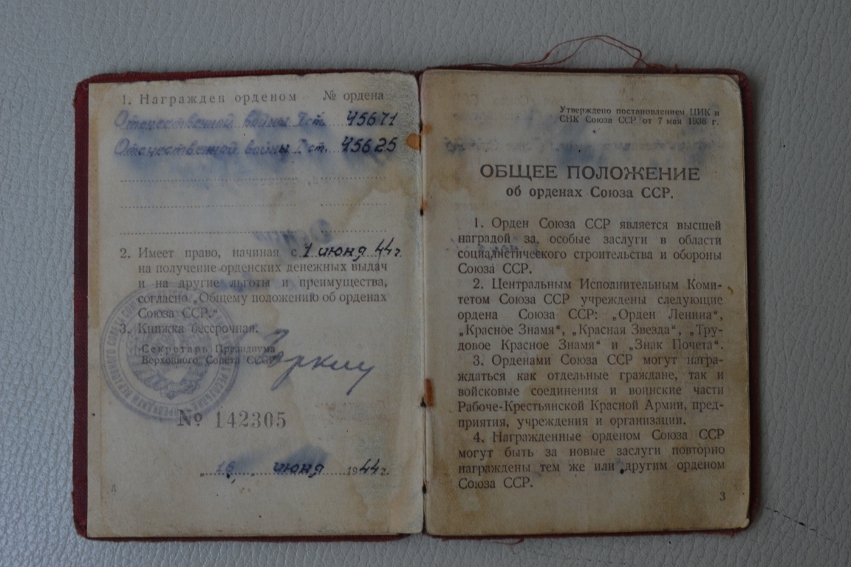 1. Награжден орденом № ордена
Отечественной войны ст. 45671
Отечественной войны ст. 45625
2. Имеет право, начиная с 1 июня 44 г.
на получение орденских денежных выдач
и на другие льготы и преимущества,
согласно „Общему положению об орденах
Союза ССР."
3. Книжка бессрочная.
Секретарь Президиума
Верховного Совета СССР
№ 142305
июня 1944 г.
Утверждено постановлением ЦИК и
СНК Союза ССР от 7 мая 1936 г.
ОБЩЕЕ ПОЛОЖЕНИЕ
об орденах Союза ССР.
1. Орден Союза ССР является высшей
наградой за особые заслуги в области
социалистического строительства и обороны
Союза ССР.
2. Центральным Исполнительным Коми-
тетом Союза ССР учреждены следующие
ордена Союза ССР: „Орден Ленина",
„Красное Знамя", „Красная Звезда", „Тру-
довое Красное Знамя" и „Знак Почета".
3. Орденами Союза ССР могут награ-
ждаться как отдельные граждане, так и
войсковые соединения и воинские части
Рабоче-Крестьянской Красной Армии, пред-
приятия, учреждения и организации.
4. Награжденные орденом Союза ССР
могут быть за новые заслуги повторно
награждены тем же или другим орденом
Союза ССР.
3